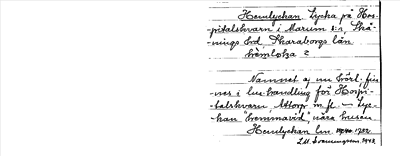 Hemlyckan. Lycka på Hos-
pitalskvarn i Marum 2:1, Skå-
nings hd Skaraborgs län
hèmløka 2
Namnet är nu bort, fin-
nes i lm handling för Hospi-
talskvarn, Attorp m. fl. – Lyc-
kan "hemmavid", nära husen
Hemlyckan lm 1702
L.M. Svanungsson. 1942.